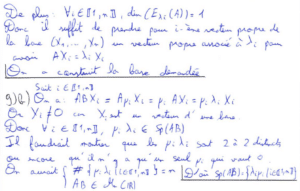 De plus, ∀ i ∈ ⟦1,n⟧, dim(E_λi(A)) = 1
Donc il suffit de prendre pour i-ème vecteur propre de
la base (X₁, ..., Xₙ) un vecteur propre associé à λi pour
avoir AXi = λi Xi
On a construit la base demandée
Soit i ∈ ⟦1,n⟧
9)a) On a : ABXi = Aμi Xi = μi AXi = μi λi Xi
Or Xi ≠ 0 car Xi est un vecteur d'une base
Donc ∀ i ∈ ⟦1,n⟧, μi λi ∈ Sp(AB)
Il faudrait montrer que les μi λi sont 2 à 2 distincts
ou encore qu'il n'y a qu'un seul μi qui vaut 0
On aurait { # {μi λi (i ∈ ⟦1,n⟧)} = n D'où Sp(AB) = {λi μi, (i ∈ ⟦1,n⟧)}
AB ∈ ℳₙ(ℝ)